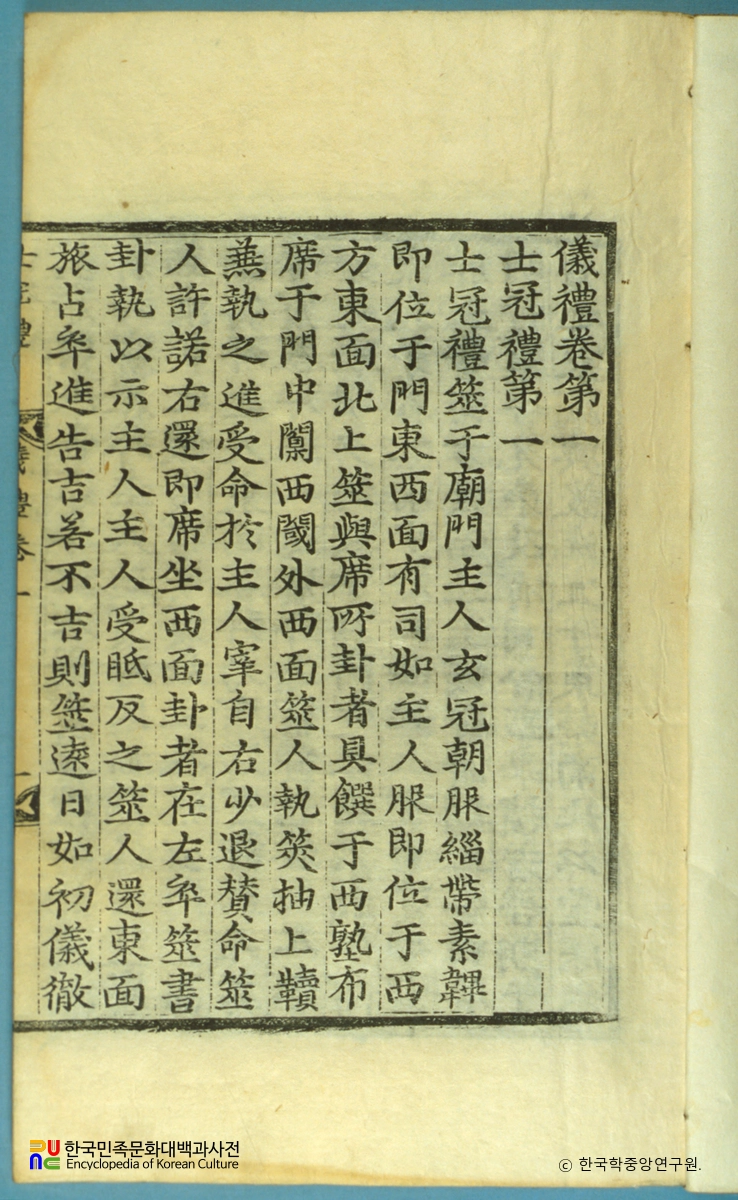 儀禮卷第一
士冠禮第一
士冠禮筮于廟門主人玄冠朝服緇帶素韠
即位于門東西面有司如主人服即位于西
方東面北上筮與席所卦者具饌于西塾布
席于門中闑西閾外西面筮人執筴抽上韇
兼執之進受命於主人宰自右少退贊命筮
人許諾右還即席坐西面卦者在左卒筮書
卦執以示主人主人受眡反之筮人還東面
旅占卒進告吉若不吉則筮遠日如初儀徹
한국민족문화대백과사전
Encyclopedia of Korean Culture
ⓒ 한국학중앙연구원.